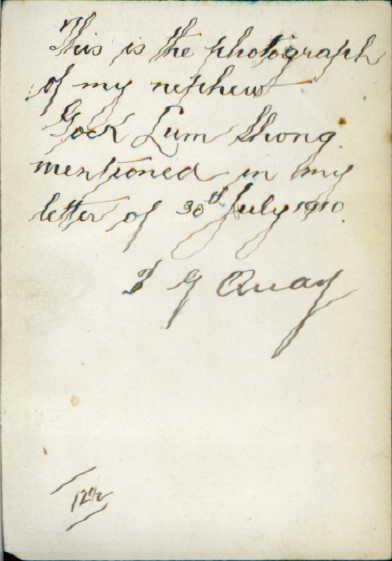 This is the photograph
of my nephew
Gock Lum Shong.
mentioned in my
letter of 30th July 1910.
G Quay